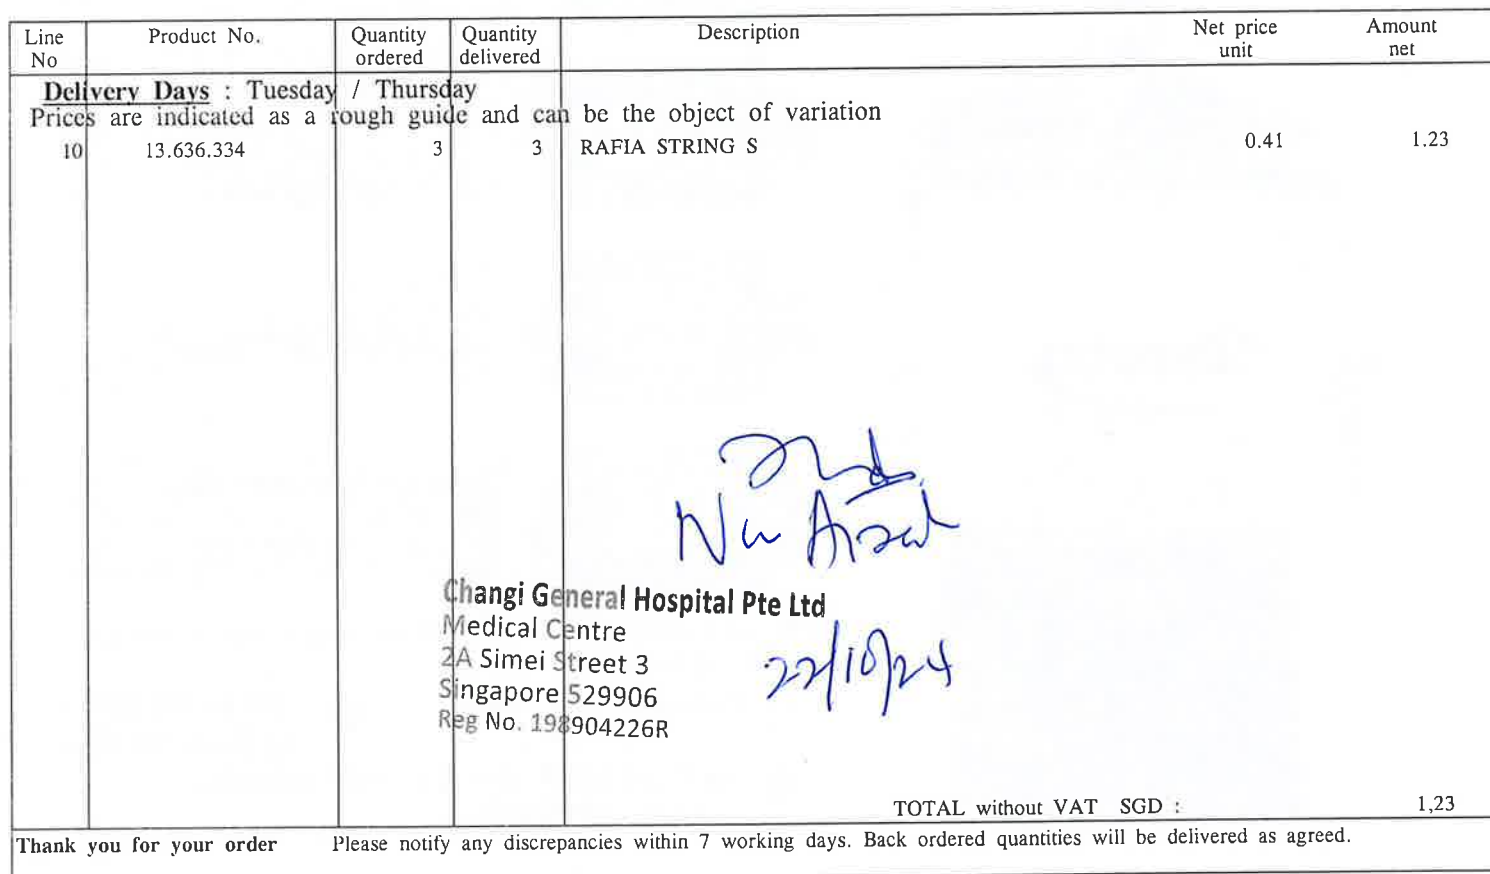 Line No Product No. Quantity ordered Quantity delivered Description Net price unit Amount net
Delivery Days : Tuesday / Thursday
Prices are indicated as a rough guide and can be the object of variation
10 13.636.334 3 3 RAFIA STRING S 0.41 1.23
Changi General Hospital Pte Ltd
Medical Centre
2A Simei Street 3
Singapore 529906
Reg No. 198904226R
22/10/24
TOTAL without VAT SGD : 1,23
Thank you for your order Please notify any discrepancies within 7 working days. Back ordered quantities will be delivered as agreed.